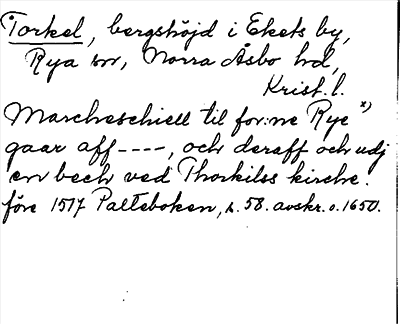 Torkel, bergshöjd i Ekets by,
Rya sn, Norra Åsbo hd,
Krist. l.
Marcheschiell til for:ne Rye x)
gaar aff ----, och deraff och udj
en bech ved Thorkilss kirche.
före 1517 Palteboken, s. 58. avskr. o. 1650.